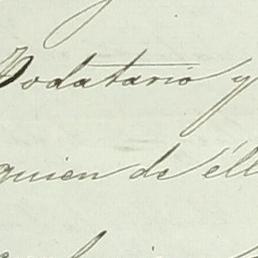 Podatario y
quien de éll